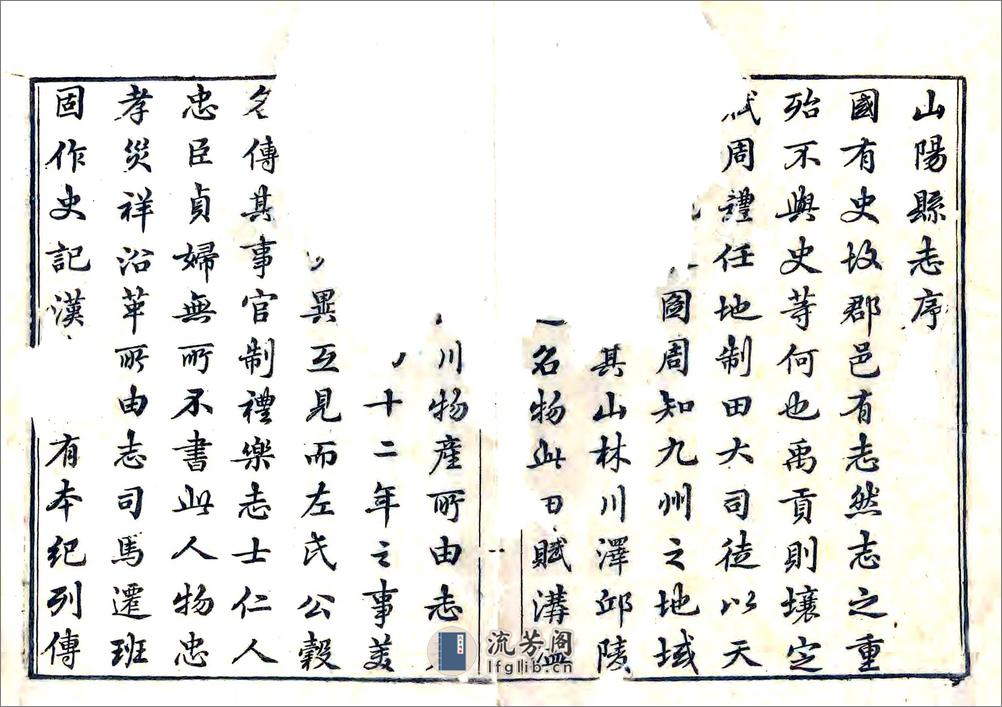 山陽縣志序
國有史故郡邑有志然志之重
殆不與史等何也禹貢則壤定
賦周禮任地制田大司徒以天
圖周知九州之地域
其山林川澤邱陵
名物此田賦溝
川物產所由志
十二年之事美
異互見而左氏公穀
名傳其事官制禮樂志士仁人
忠臣貞婦無所不書此人物忠
孝災祥沿革所由志司馬遷班
固作史記漢 有本紀列傳
流芳阁
lfglib.cn